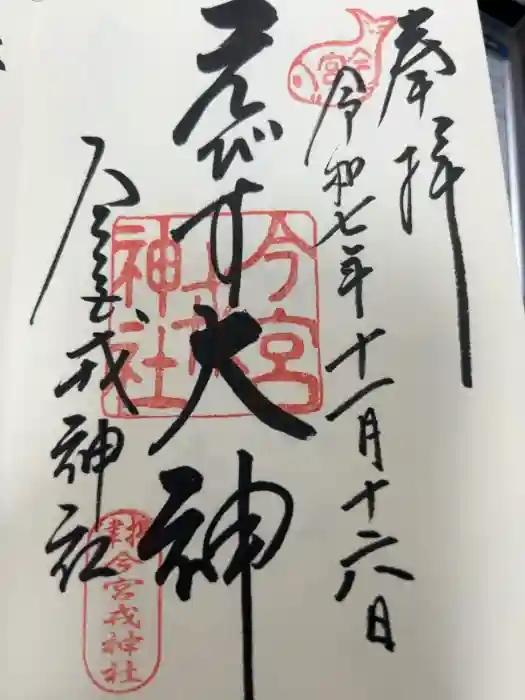 奉拝
令和七年十一月十六日
えびす大神
今宮戎神社
今宮
今宮戎神社
今宮戎神社